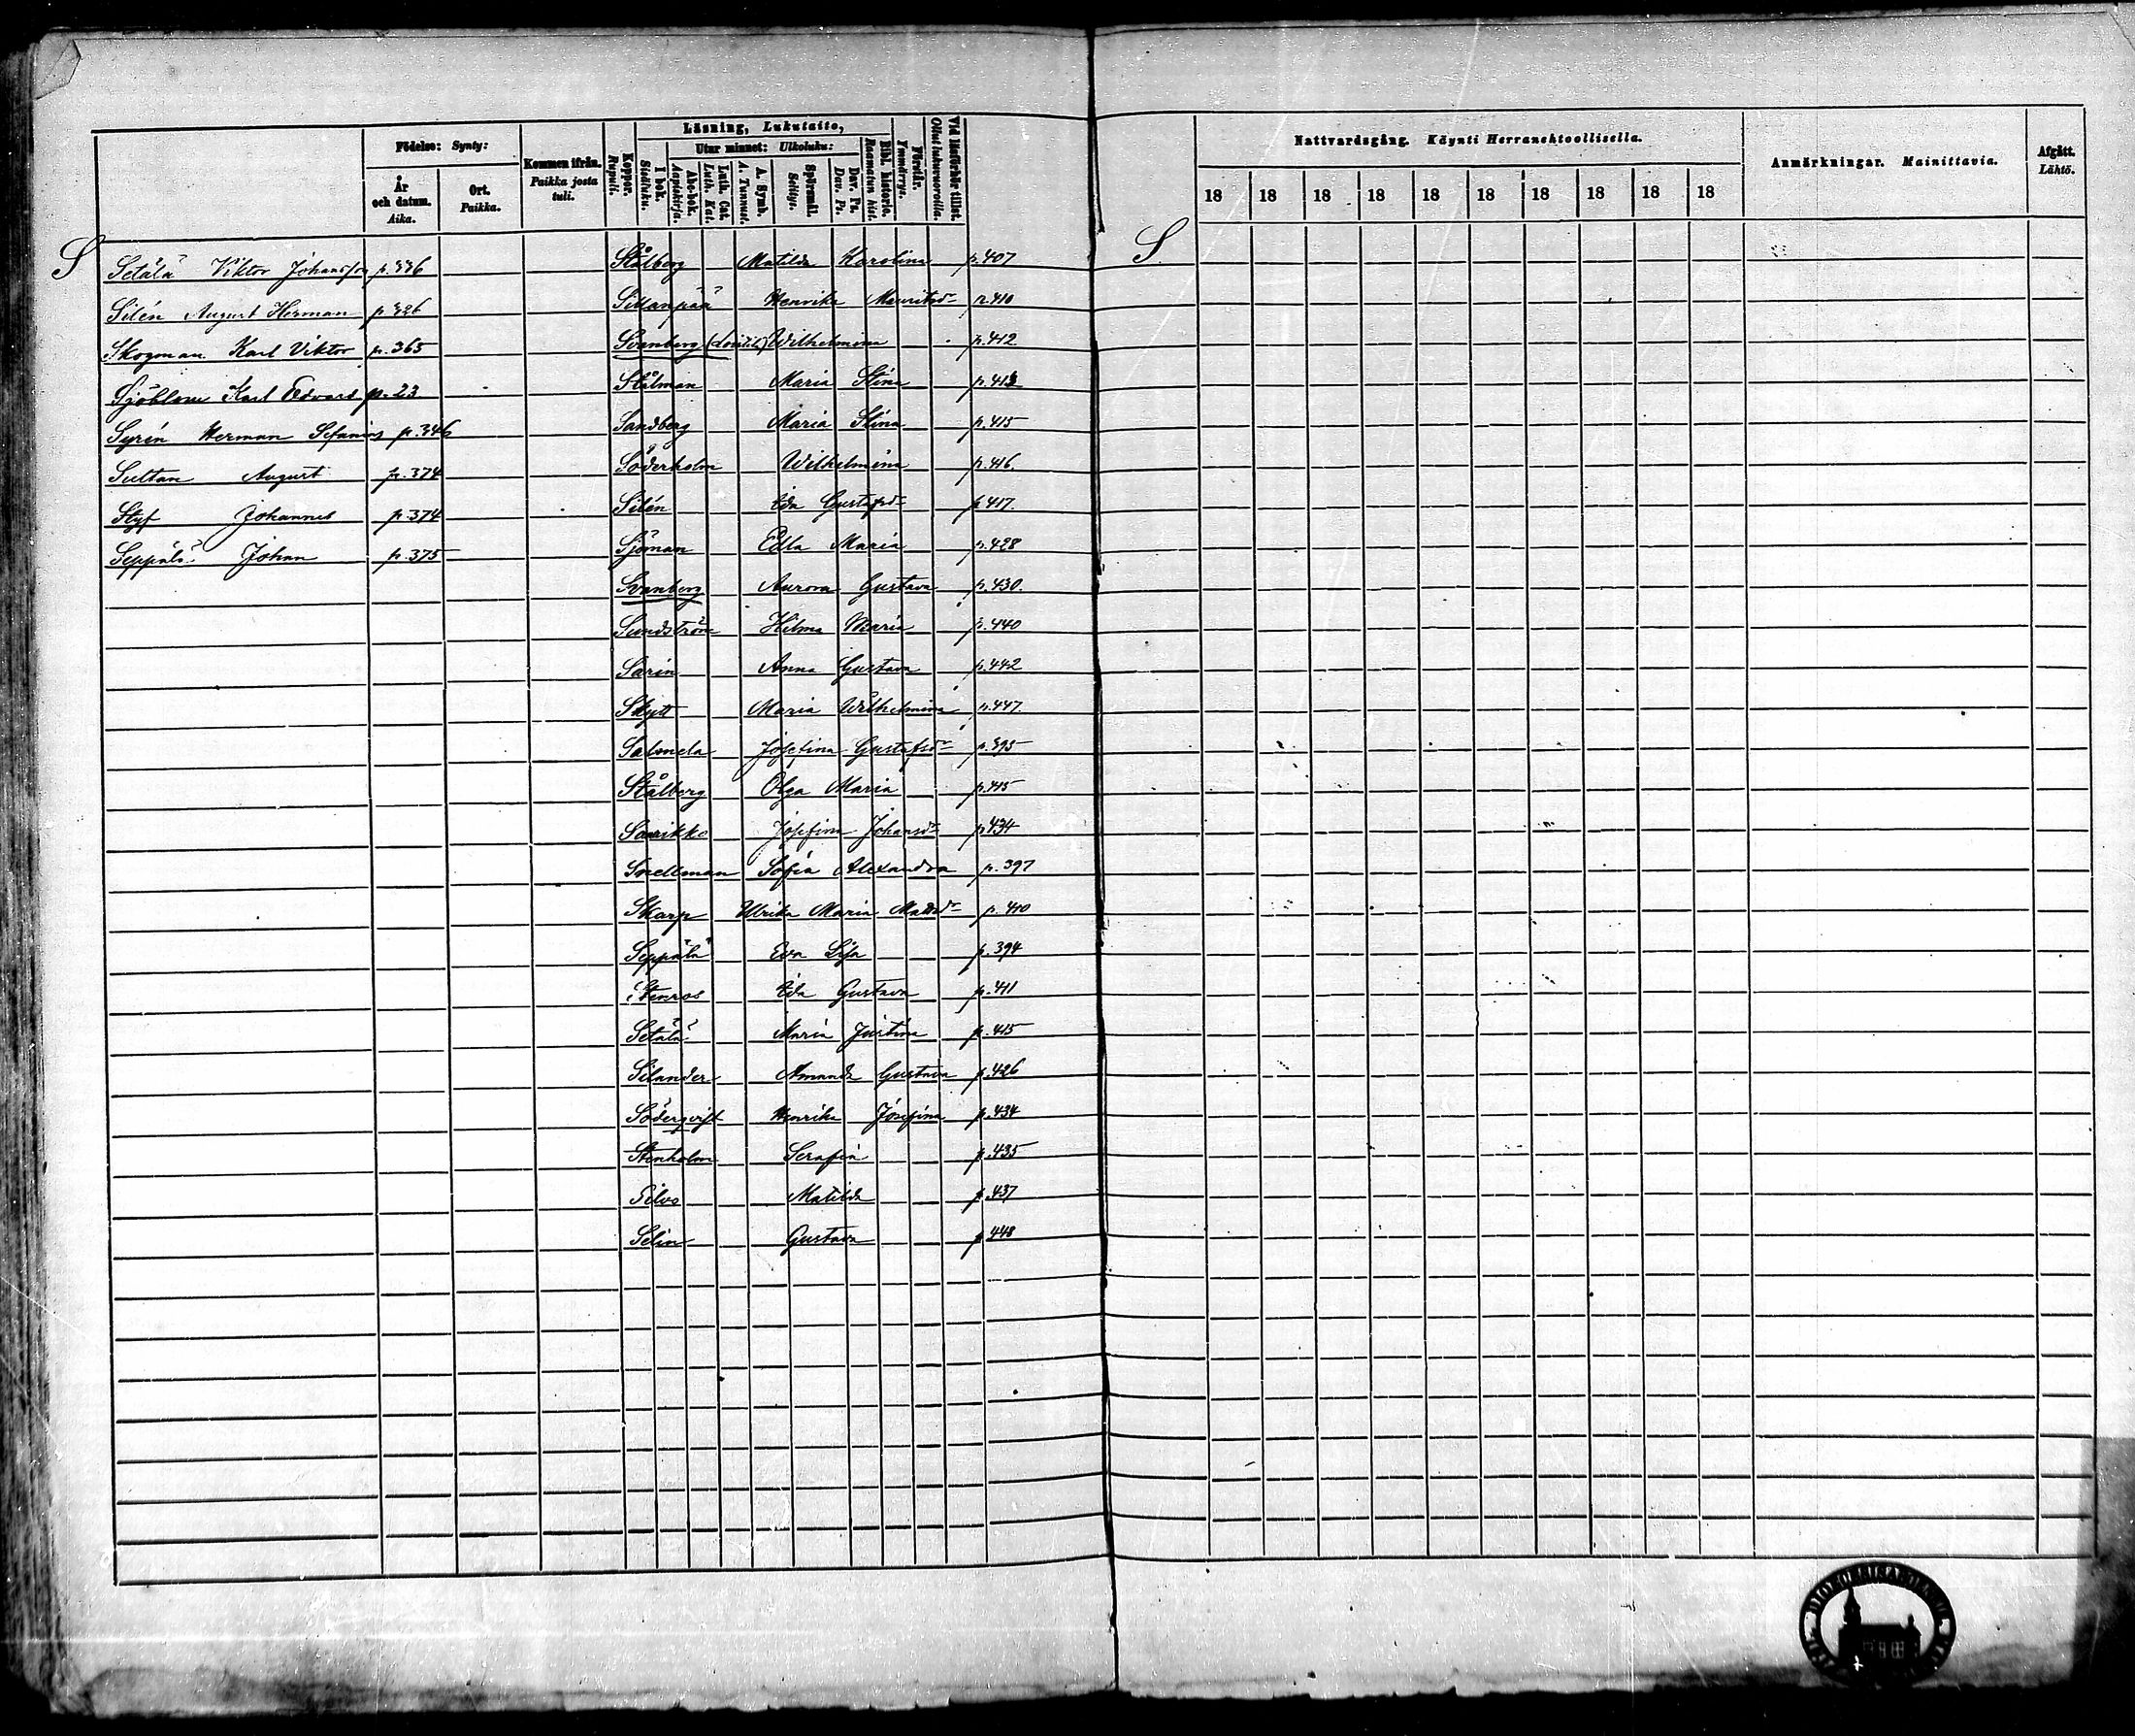 Födelse: Synty:
År och datum. Aika.
Ort. Paikka.
Kommen ifrån. Paikka josta tuli.
Koppor. Rupuli.
Läsning, Lukutaito,
I bok. Sisäluku.
Utur minnet: Ulkoluku:
Abc-bok. Aapiskirja.
Luth. Cat. Luth. Kat.
A. Symb. A. Tunnust.
Spörsmål. Selitys.
Dav. Ps. Dav. Ps.
Bibl. historie. Raamatun hist.
Förstår. Ymmärrys.
Vid läsförhör tillst. Ollut lukuvuoroilla.
Nattvardsgång. Käynti Herranehtoollisella.
18 18 18 18 18 18 18 18 18 18
Anmärkningar. Mainittavia.
Afgått. Lähtö.
S
Setälä Viktor Johansson
Silén August Herman
Skogman Karl Viktor p. 365
Sjöblom Karl Edvard p. 23
Syrén Herman Sefanias p. 346
Sultan August p. 374
Styf Johannes p. 374
Seppälä Johan p. 375
Stålberg Matilda Karolina p. 407
Sillanpää Henrika Mauritsdr p. 410
Svanberg Wilhelmina p. 412
Stålman Maria Stina
Sandberg Maria Stina p. 415
Söderholm Wilhelmina p. 416
Silén Ida Gustafsdr p. 417.
Sjöman Edla Maria p. 428
Svanberg Aurora Gustava p. 430.
Sundström Hilma Maria p. 440
Sarin Anna Gustava p. 442
Skytt Maria Wilhelmina p. 447.
Salmela Josefina Gustafsdr
Stålberg Olga Maria p. 415
Saarikko Josefina Johansdr p. 434
Snellman Sofia Alexandra p. 397
Skarp Ulrika Maria Mattsdr p. 410
Seppälä Eva Lisa p. 394
Stenros Ida Gustava p. 411
Setälä Maria Justina p. 415
Silander Amanda Gustava p. 426
Söderqvist Henrika Josefina p. 434
Stenholm Serafia p. 435
Silvo Matilda p. 437
Selin Gustava p. 448
S